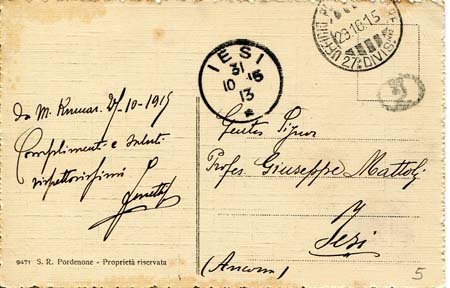 IESI
31
10 15
13
29.10.15
27ª DIVIS
da M. 27-10-1915
Complimenti e saluti
rispettosissimi
Gentes Signor
Profes. Giuseppe Mattoli
Jesi
(Ancona)
9471 S. R. Pordenone - Proprietà riservata
5